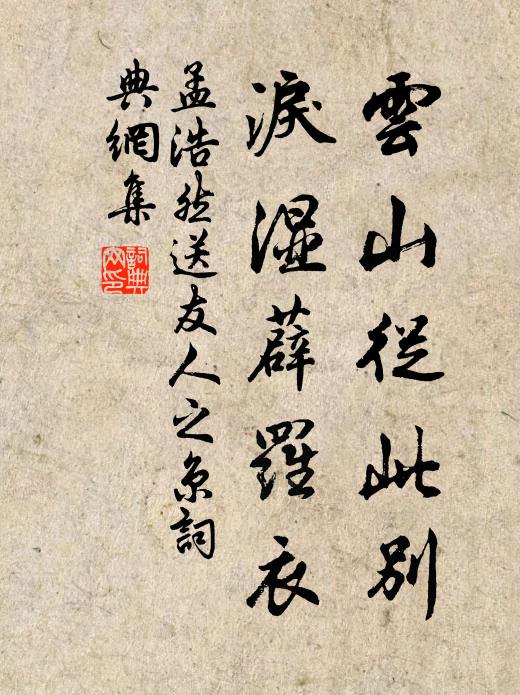 雲山從此別
淚濕薜羅衣
孟浩然送友人之京詞
典網集
詞典